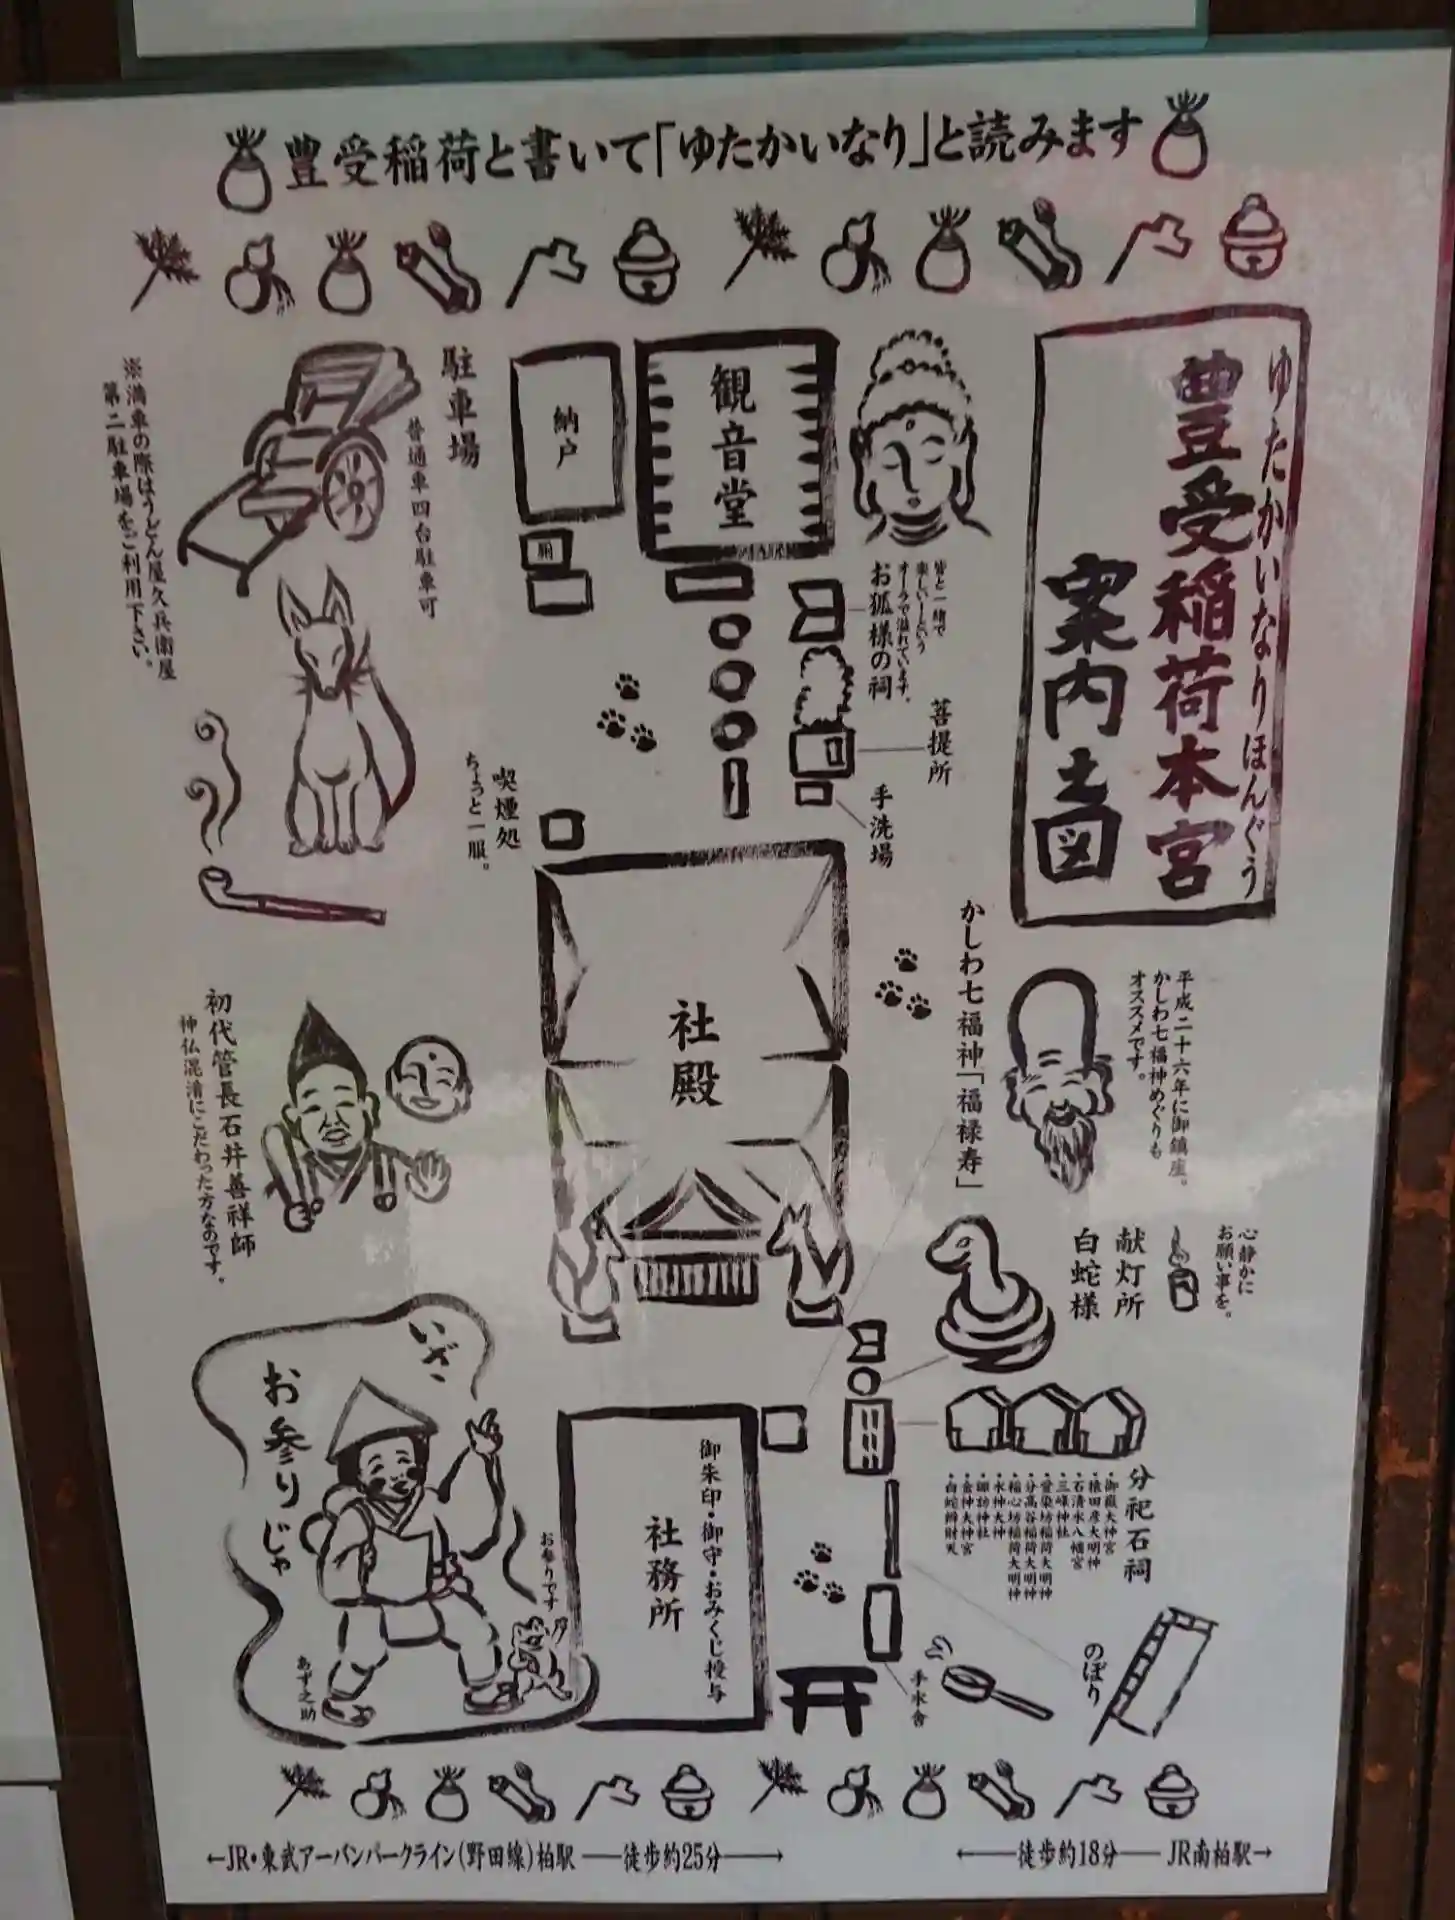 豊受稲荷と書いて「ゆたかいなり」と読みます
ゆたかいなりほんぐう
豊受稲荷本宮
案内之図
観音堂
納戸
駐車場
普通車四台駐車可
※満車の際はうどん屋久兵衛屋
第二駐車場をご利用下さい。
皆と一緒で
楽しい!という
オーラで溢れています。
お狐様の祠
菩提所
手洗場
喫煙処
ちょっと一服。
社殿
かしわ七福神「福禄寿」
平成二十六年に御鎮座。
かしわ七福神めぐりも
オススメです。
初代管長石井善祥師
神仏混淆にこだわった方なのです。
心静かに
お願い事を。
献灯所
白蛇様
分祀石祠
・御嶽大神宮
・猿田彦大明神
・石清水八幡宮
・三峰神社
・愛染坊稲荷大明神
・分高谷稲荷大明神
・稲心坊稲荷大明神
・水神大神
・諏訪神社
・金神大神宮
・白蛇辨財天
いざ、
お参りじゃ
お参りです
あず之助
御朱印・御守・おみくじ授与
社務所
手水舎
のぼり
←JR・東武アーバンパークライン(野田線)柏駅 ──徒歩約25分──→
←──徒歩約18分── JR南柏駅→